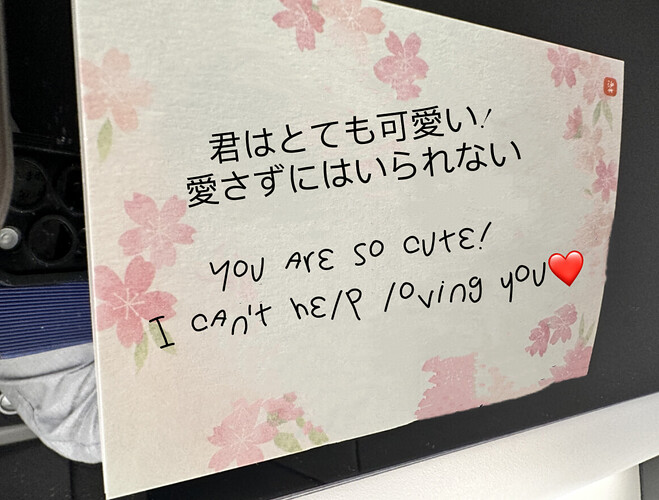 君はとても可愛い!
愛さずにはいられない
YOU ARE SO CUTE!
I CAN'T HELP loving you❤️